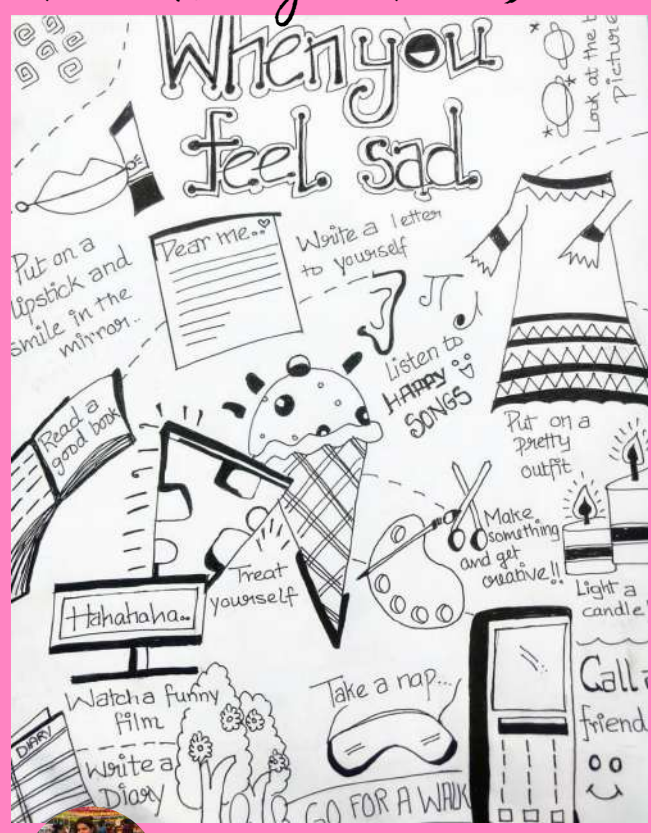 When you
feel sad
Look at the
picture
Put on a
lipstick and
smile in the
mirror..
Dear me..
Write a letter
to yourself
Listen to
HAPPY
SONGS
Read a
good book
Put on a
pretty
outfit
Make
something
and get
creative!!
Treat
yourself
Light a
candle
Hahahaha..
Watch a funny
film
Take a nap...
Call
friend
DIARY
Write a
Diary
GO FOR A WALK